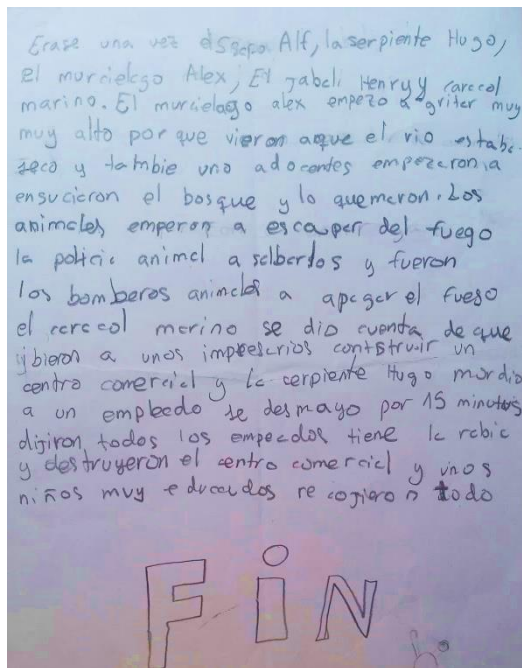 Erase una vez el sapo Alf, la serpiente Hugo,
el murcielago Alex, El Jabeli Henry y carecol
marino. El murcielago alex empezo a griter muy
muy alto por que vieron aque el rio estaba
seco y tambie uno adocentes empezeron a
ensucieron el bosque y lo quemeron. Los
animeles emperon a escauper del fuego
la policie animel a selberlos y fueron
los bomberos animeles a apeger el fuego
el cerecol merino se dio cuenta de que
ibieron a unos impresarios contstruir un
centro comerciel y la cerpiente Hugo mordio
a un empleedo se desmayo por 15 minutos
dijiron todos los empeedos tiene le rebie
y destruyeron el centro comerciel y unos
niños muy educeudos recogieron todo
FIN